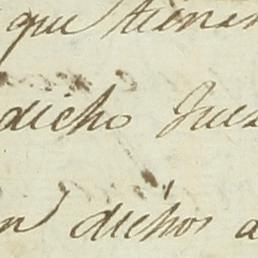 que tienen
dicho Juez
en dichos a